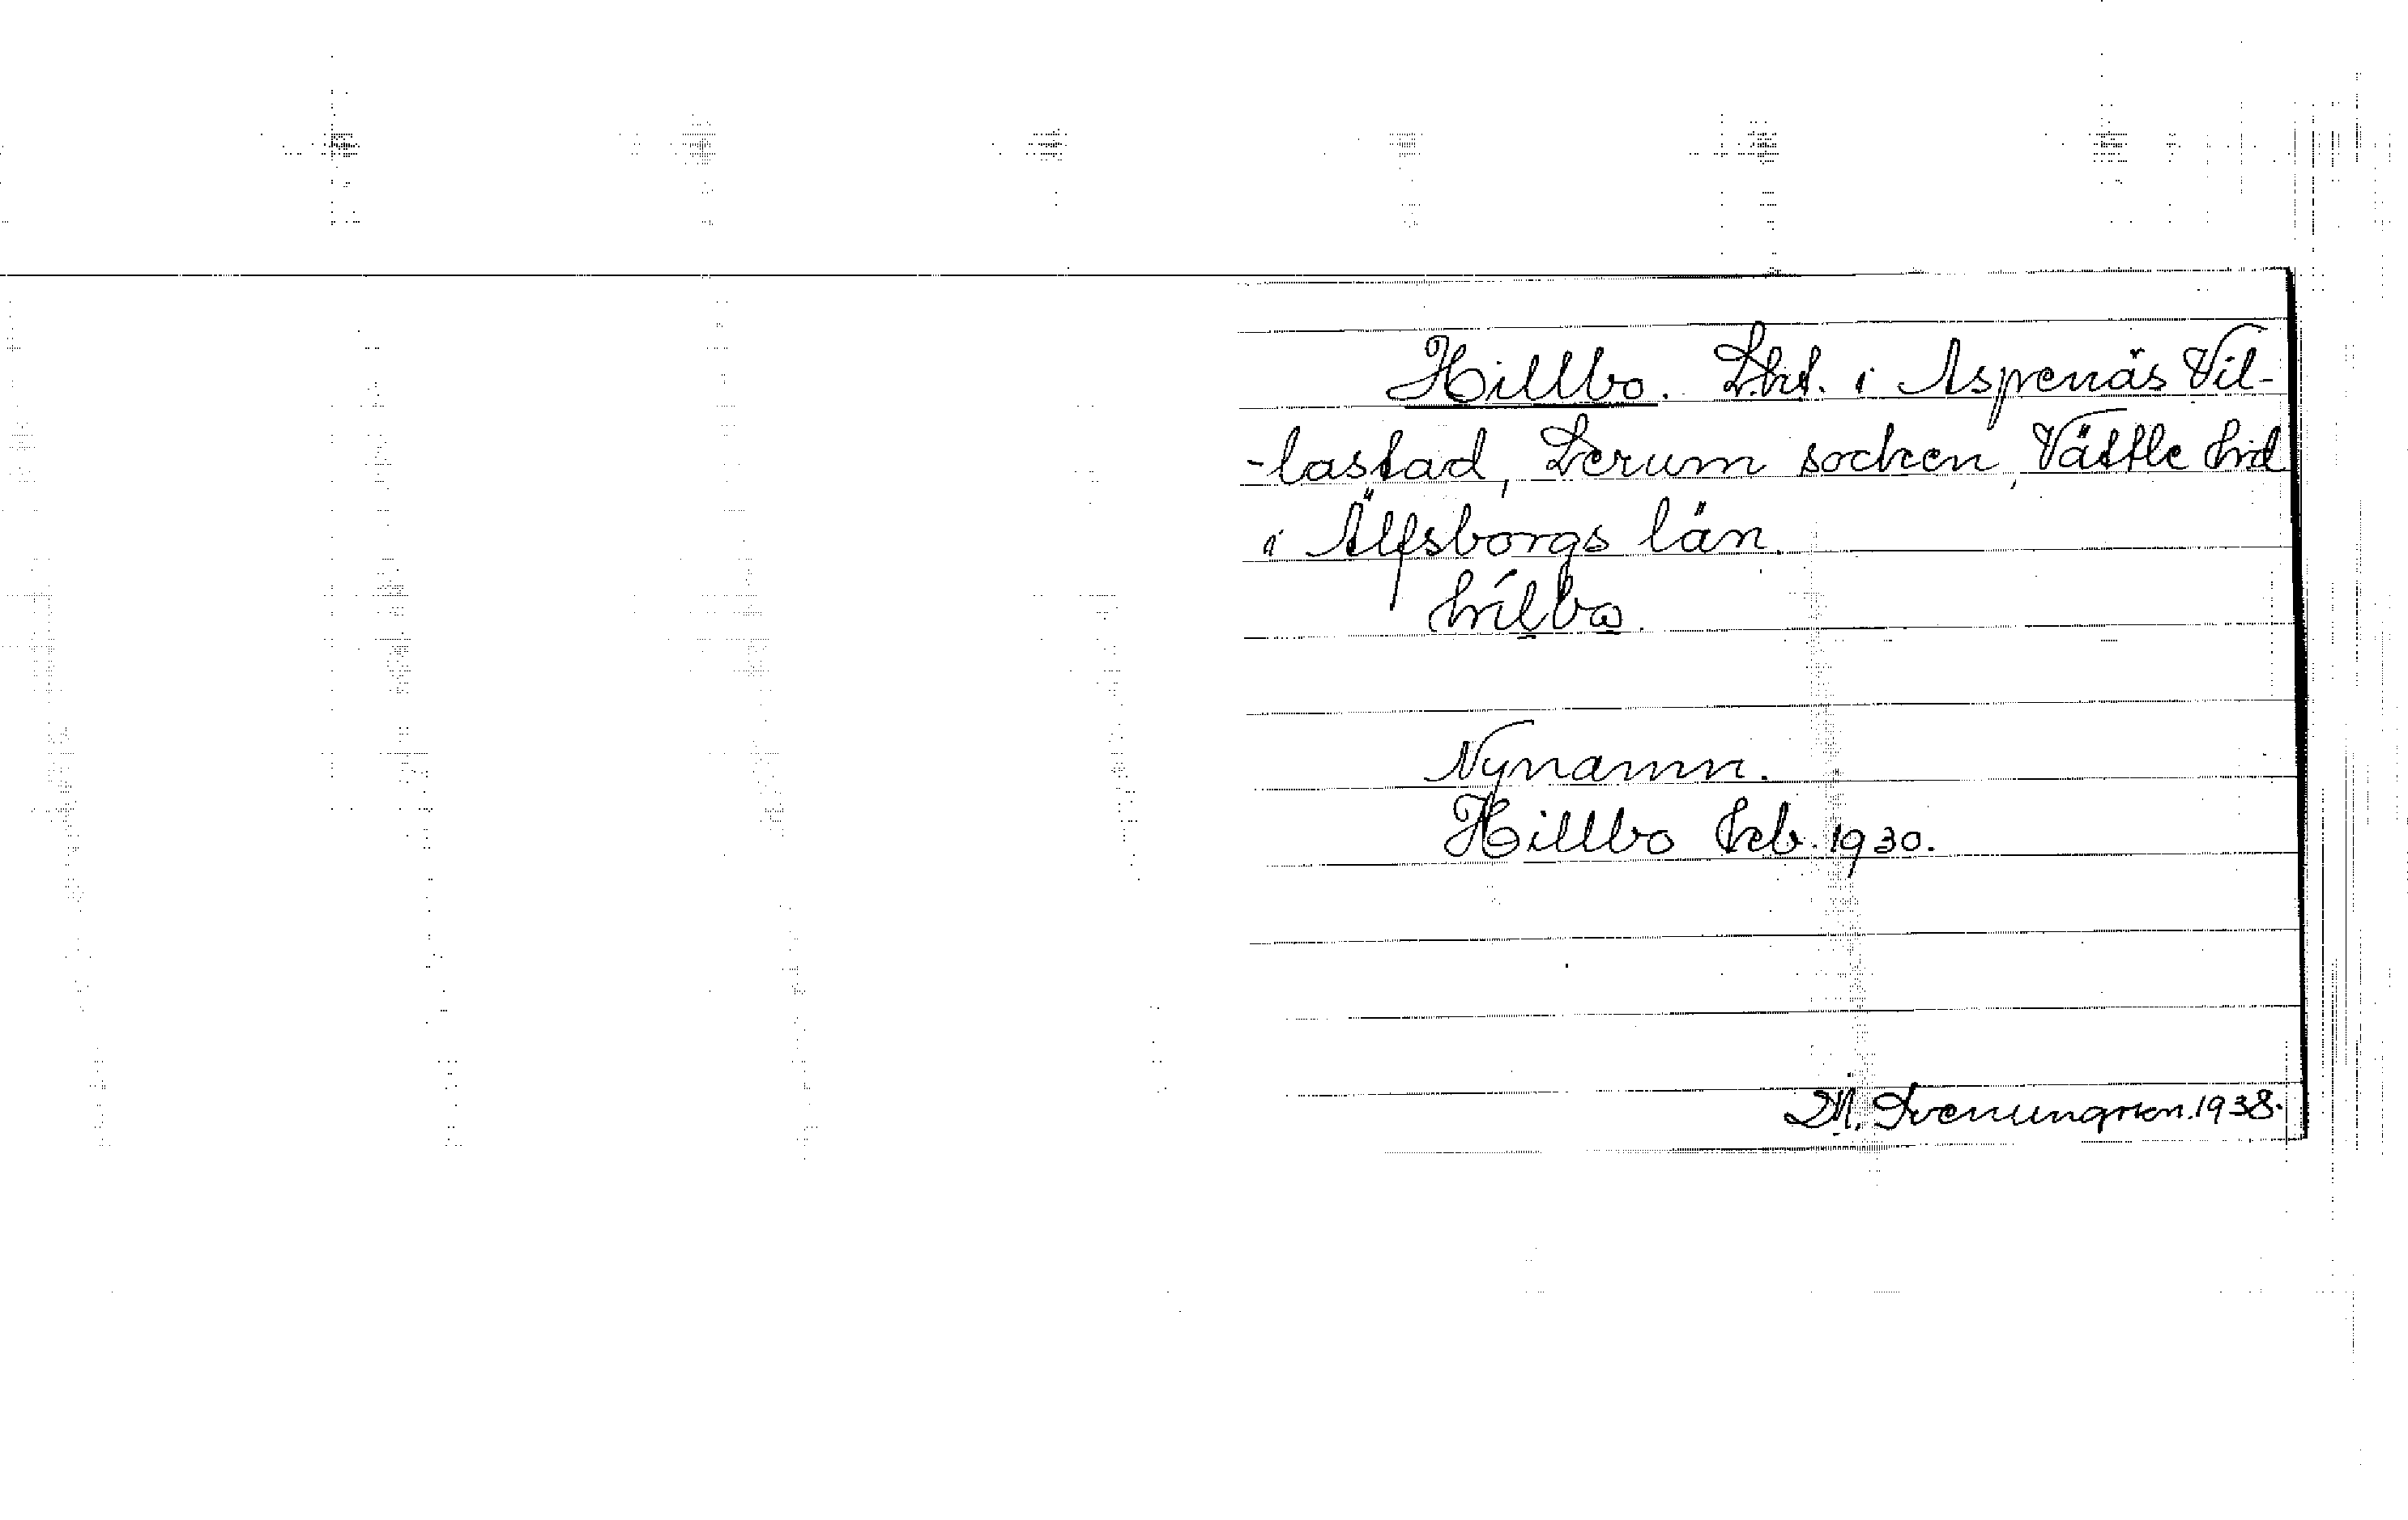 Hillbo. Lht. i Aspenäs Vil-
-lastad, Lerum socken, Vättle hd
i Älfsborgs län.
hìlbo.
Nynamn.
Hillbo Jeb. 1930.
M. Svenungson. 1938.